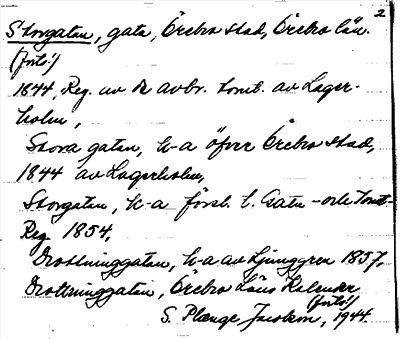 2
Storgatan, gata, Örebro stad, Örebro län.
(forts.)
1844, Reg. av de avbr. tomt. av Lager-
holm,
Stora gatan, k-a öfver Örebro stad,
1844 av Lagerholm,
Storgatan, k-a försl. t. Gatu- och Tomt-
Reg. 1854,
Drottninggatan, k-a av Ljunggren 1857,
Drottninggatan, Örebro Läns Kalender
(forts.)
S. Plænge Jacobson, 1944.